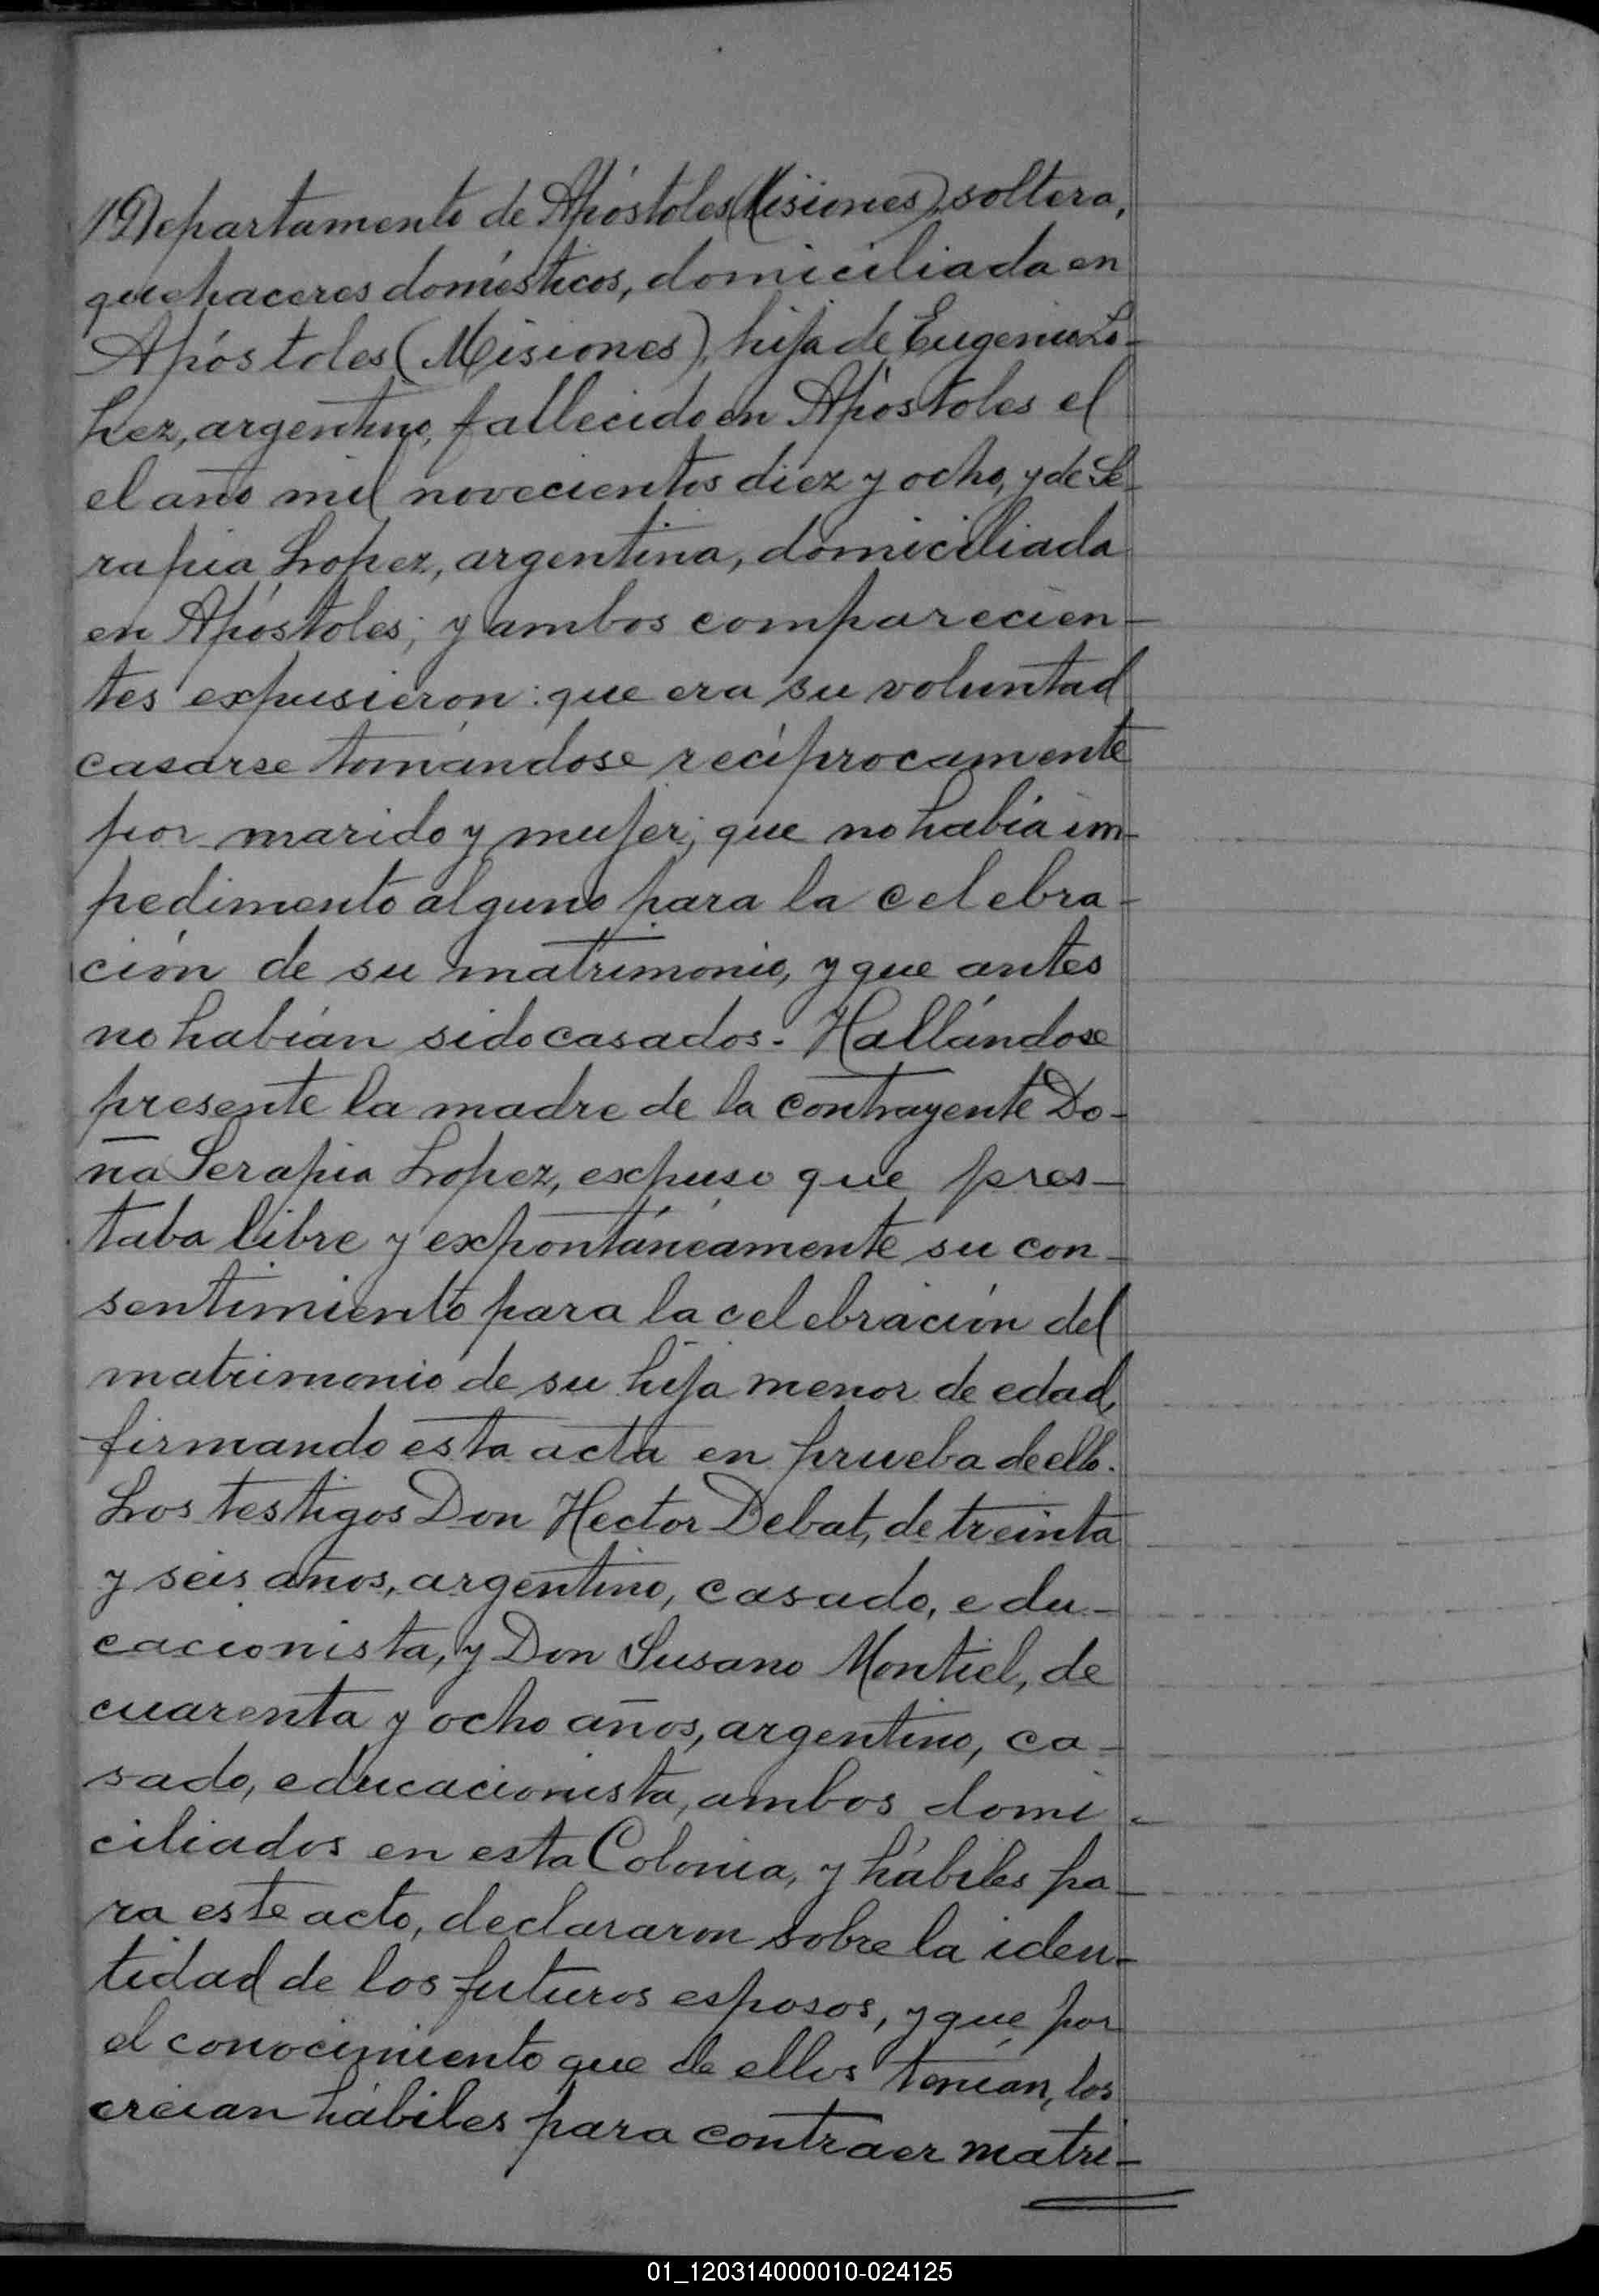 Departamento de Apóstoles (Misiones), soltera,
quehaceres domésticos, domiciliada en
Apóstoles (Misiones), hija de Eugenio Ló-
pez, argentino, fallecido en Apóstoles el
el año mil novecientos diez y ocho, y de Se-
rapia Lopez, argentina, domiciliada
en Apóstoles; y ambos comparecien-
tes expusieron: que era su voluntad
casarse tomándose recíprocamente
por marido y mujer; que no había im-
pedimento alguno para la celebra-
ción de su matrimonio, y que antes
no habían sido casados. Hallándose
presente la madre de la contrayente Do-
ña Serapia Lopez, expuso que pres-
taba libre y expontáneamente su con-
sentimiento para la celebración del
matrimonio de su hija menor de edad,
firmando esta acta en prueba de ello.
Los testigos Don Hector Debat, de treinta
y seis años, argentino, casado, edu-
cacionista, y Don Susano Montiel, de
cuarenta y ocho años, argentino, ca-
sado, educacionista, ambos domi-
ciliados en esta Colonia, y hábiles pa-
ra este acto, declararon sobre la iden-
tidad de los futuros esposos, y que por
el conocimiento que de ellos tenían, los
creían hábiles para contraer matri-
01_120314000010-024125